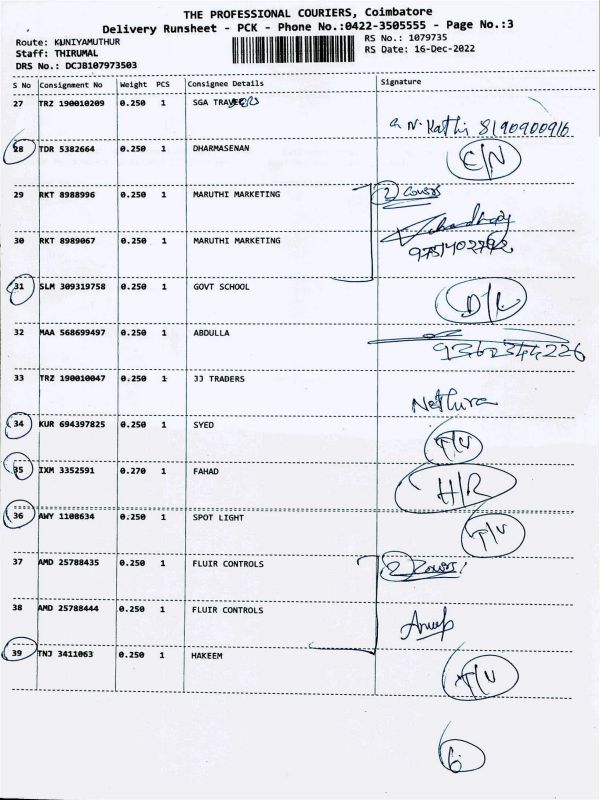 THE PROFESSIONAL COURIERS, Coimbatore
Delivery Runsheet - PCK - Phone No.:0422-3505555 - Page No.:3
Route: KUNIYAMUTHUR
RS No.: 1079735
Staff: THIRUMAL
RS Date: 16-Dec-2022
DRS No.: DCJB107973503
S No Consignment No Weight PCS Consignee Details Signature
27 TRZ 190010209 0.250 1 SGA TRAVE
8190900916
28 TDR 5382664 0.250 1 DHARMASENAN
C/N
29 RKT 8988996 0.250 1 MARUTHI MARKETING
2 Cours
30 RKT 8989067 0.250 1 MARUTHI MARKETING
31 SLM 309319758 0.250 1 GOVT SCHOOL
D/L
32 MAA 568699497 0.250 1 ABDULLA
9362344226
33 TRZ 190010047 0.250 1 JJ TRADERS
Nethura
34 KUR 694397825 0.250 1 SYED
35 IXM 3352591 0.270 1 FAHAD
H/R
36 AWY 1108634 0.250 1 SPOT LIGHT
37 AMD 25788435 0.250 1 FLUIR CONTROLS
2 Cours
38 AMD 25788444 0.250 1 FLUIR CONTROLS
Anup
39 TNJ 3411063 0.250 1 HAKEEM
6